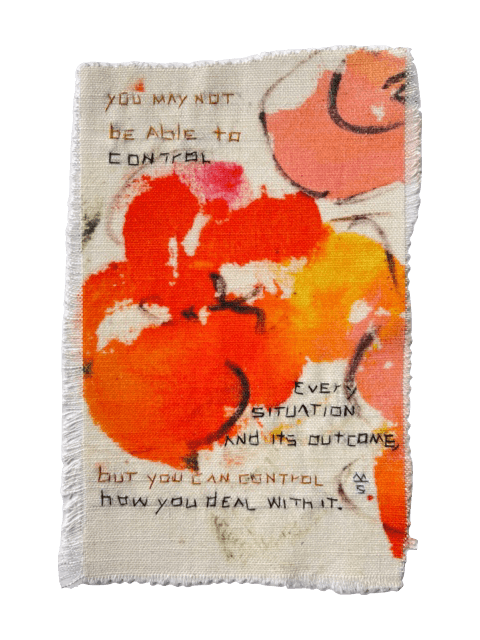 YOU MAY NOT
bE AbLE to
CONTROL
EVERY
SITUATION
AND ITS OUTCOME,
bUT YOU CAN CONTROL
hOW YOU DEAL WITH IT.
MS